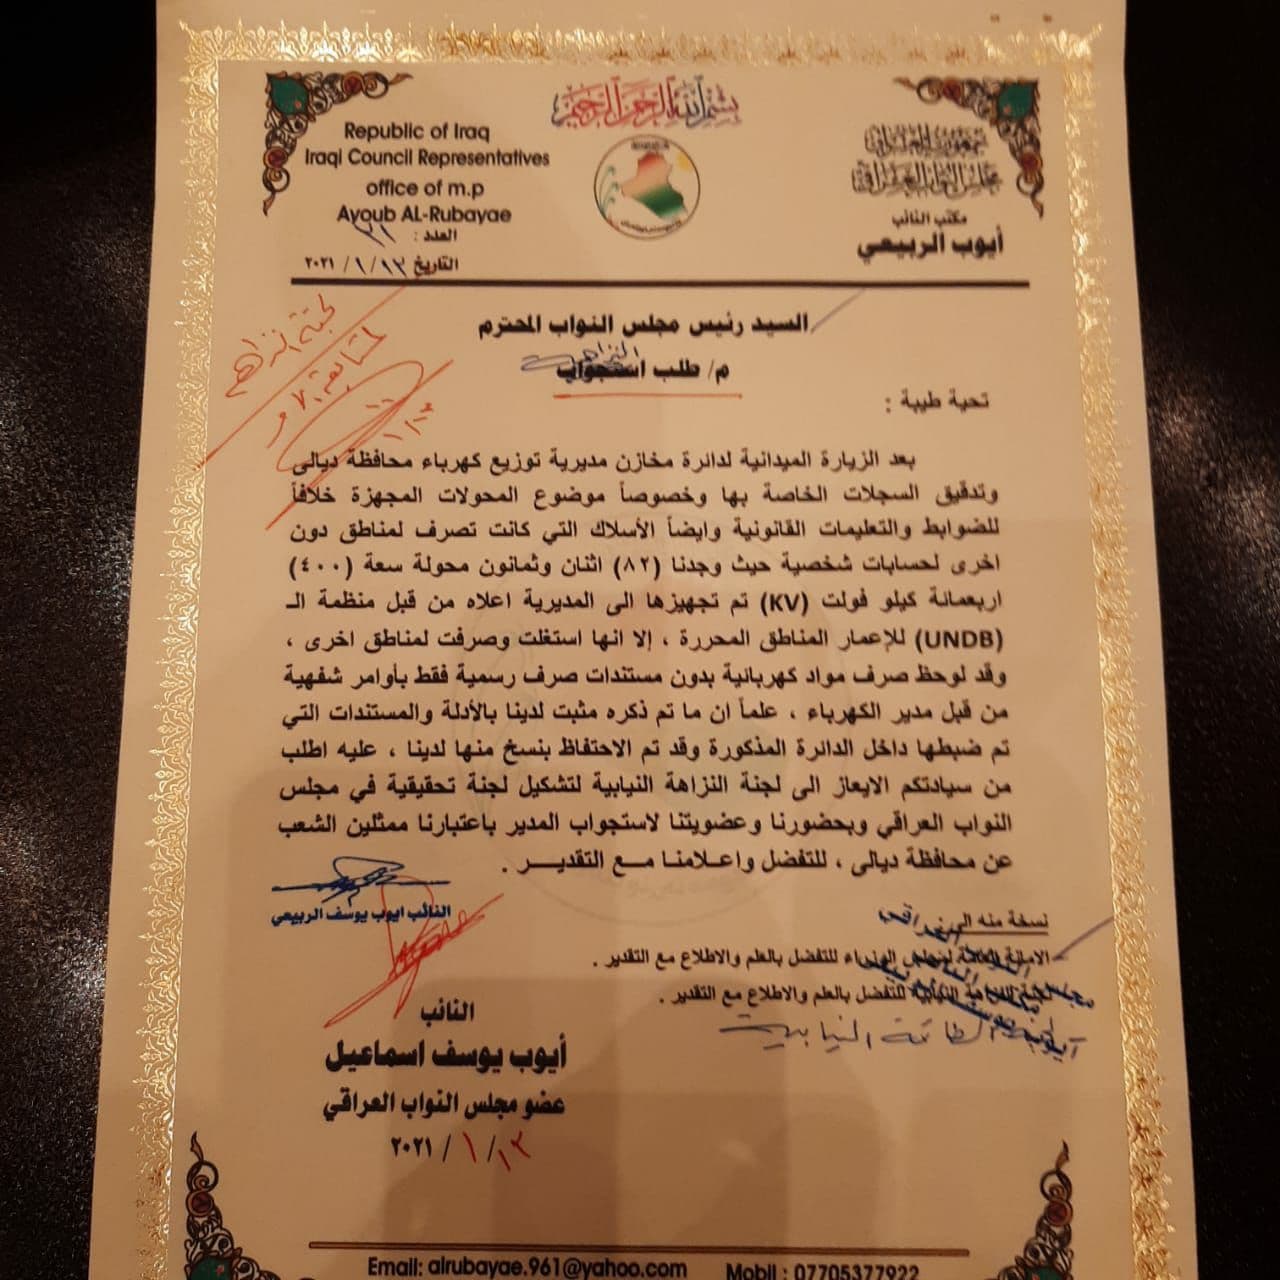 بسم الله الرحمن الرحيم
Republic of Iraq
Iraqi Council Representatives
office of m.p
Ayoub AL-Rubayae
العدد : ٣١
التاريخ ١٣ / ١ / ٢٠٢١
جمهورية العراق
مجلس النواب العراقي
مكتب النائب
أيوب الربيعي
لجنة النزاهة
السيد رئيس مجلس النواب المحترم
النزاهة
م/ طلب استجواب
تحية طيبة :
بعد الزيارة الميدانية لدائرة مخازن مديرية توزيع كهرباء محافظة ديالى
وتدقيق السجلات الخاصة بها وخصوصاً موضوع المحولات المجهزة خلافاً
للضوابط والتعليمات القانونية وايضاً الأسلاك التي كانت تصرف لمناطق دون
اخرى لحسابات شخصية حيث وجدنا (٨٢) اثنان وثمانون محولة سعة (٤٠٠)
اربعمائة كيلو فولت (KV) تم تجهيزها الى المديرية اعلاه من قبل منظمة الـ
(UNDB) للإعمار المناطق المحررة ، إلا انها استغلت وصرفت لمناطق اخرى ،
وقد لوحظ صرف مواد كهربائية بدون مستندات صرف رسمية فقط بأوامر شفهية
من قبل مدير الكهرباء ، علماً ان ما تم ذكره مثبت لدينا بالأدلة والمستندات التي
تم ضبطها داخل الدائرة المذكورة وقد تم الاحتفاظ بنسخ منها لدينا ، عليه اطلب
من سيادتكم الايعاز الى لجنة النزاهة النيابية لتشكيل لجنة تحقيقية في مجلس
النواب العراقي وبحضورنا وعضويتنا لاستجواب المدير باعتبارنا ممثلين الشعب
عن محافظة ديالى ، للتفضل واعلامنا مع التقدير .
النائب ايوب يوسف الربيعي
نسخة منه الى :
الامانة العامة لمجلس الوزراء للتفضل بالعلم والاطلاع مع التقدير .
لجنة النزاهة النيابية للتفضل بالعلم والاطلاع مع التقدير .
الطاقة النيابية
النائب
أيوب يوسف اسماعيل
عضو مجلس النواب العراقي
١٣ / ١ / ٢٠٢١
Email: alrubayae.961@yahoo.com
Mobil : 07705377922